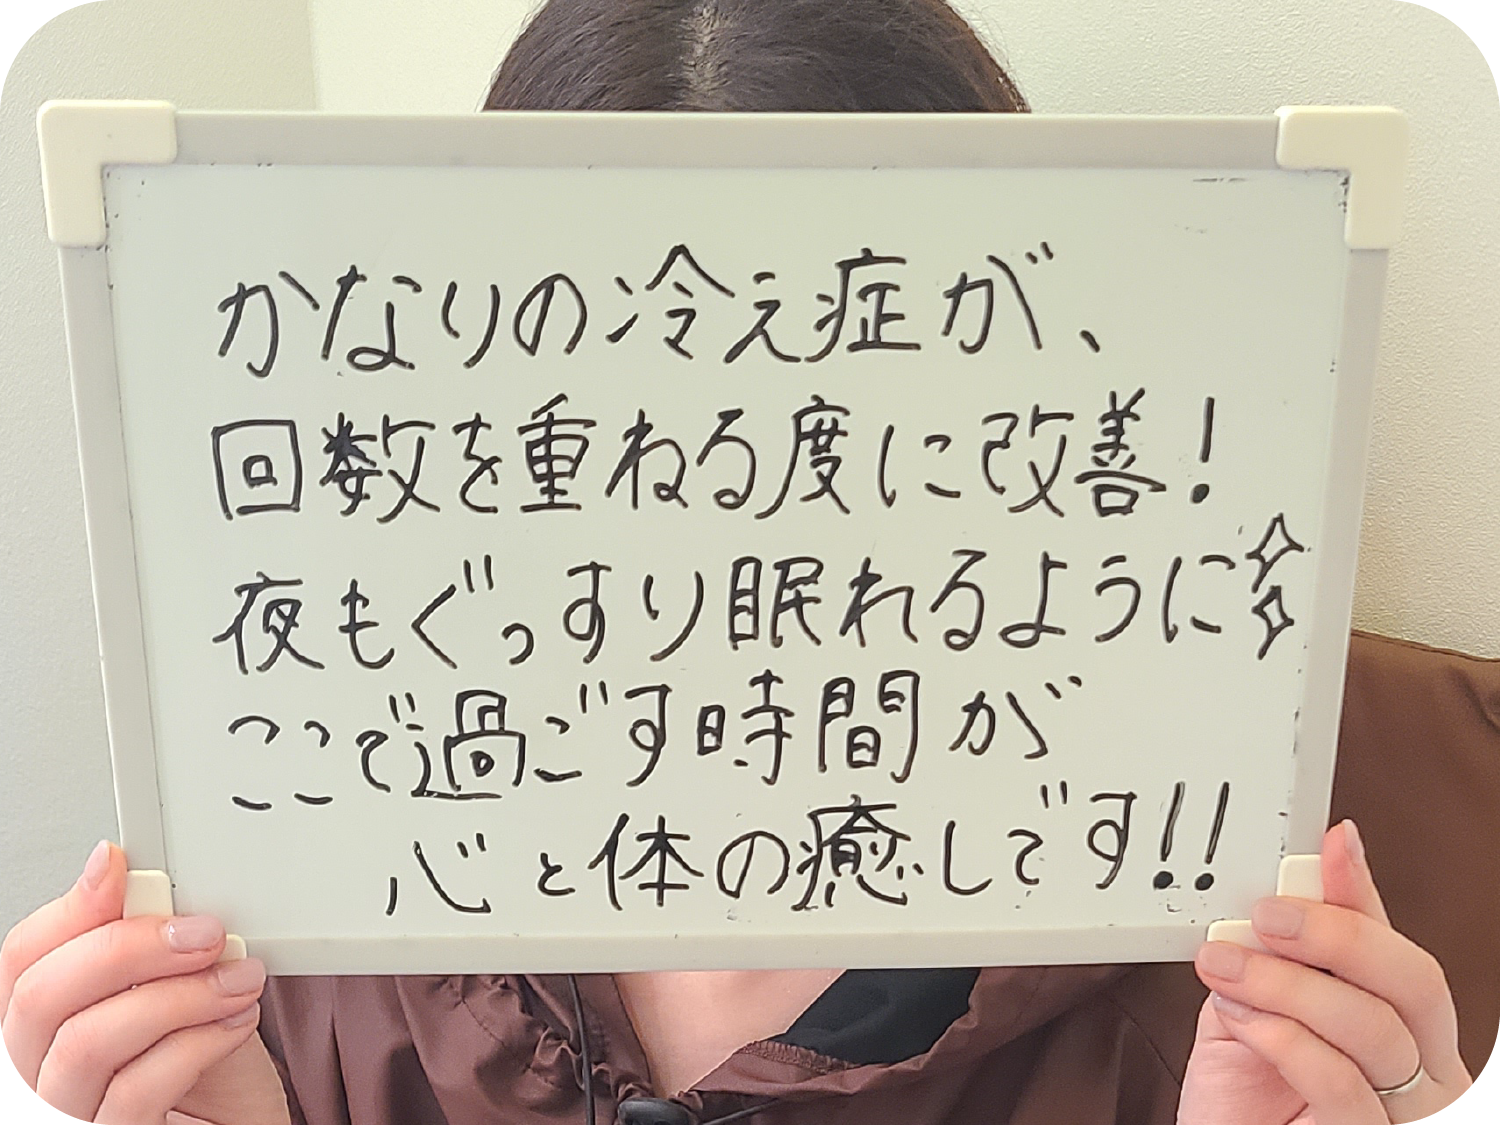 かなりの冷え症が、
回数を重ねる度に改善!
夜もぐっすり眠れるように✧✧
ここで過ごす時間が
心と体の癒しです!!